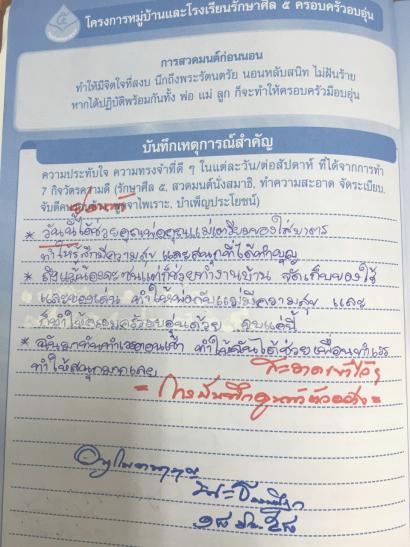 โครงการหมู่บ้านและโรงเรียนรักษาศีล ๕ ครอบครัวอบอุ่น
การสวดมนต์ก่อนนอน
ทำให้มีจิตใจที่สงบ นึกถึงพระรัตนตรัย นอนหลับสนิท ไม่ฝันร้าย
หากได้ปฏิบัติพร้อมกันทั้ง พ่อ แม่ ลูก ก็จะทำให้ครอบครัวมีอบอุ่น
บันทึกเหตุการณ์สำคัญ
ความประทับใจ ความทรงจำที่ดี ๆ ในแต่ละวัน/ต่อสัปดาห์ ที่ได้จากการทำ
7 กิจวัตรความดี (รักษาศีล ๕, สวดมนต์นั่งสมาธิ, ทำความสะอาด จัดระเบียบ,
จับดี พูดจาไพเราะ, บำเพ็ญประโยชน์)
* วันนี้ได้ช่วยคุณพ่อคุณแม่เตรียมของใส่บาตร
ทำให้รู้สึกมีความสุข และสนุกที่ได้ทำบุญ
* ถึงแม้น้องจะซนแต่ก็ช่วยทำงานบ้าน จัดเก็บของใช้
และของเล่น ทำให้พ่อกับแม่มีความสุข และ
ก็ทำให้ครอบครัวอบอุ่นด้วย
* ฉันมาทันทำเวรตอนเช้า ทำให้ฉันได้ช่วยเพื่อนทำเวร
ทำให้สนุกมากเลย
๑๘